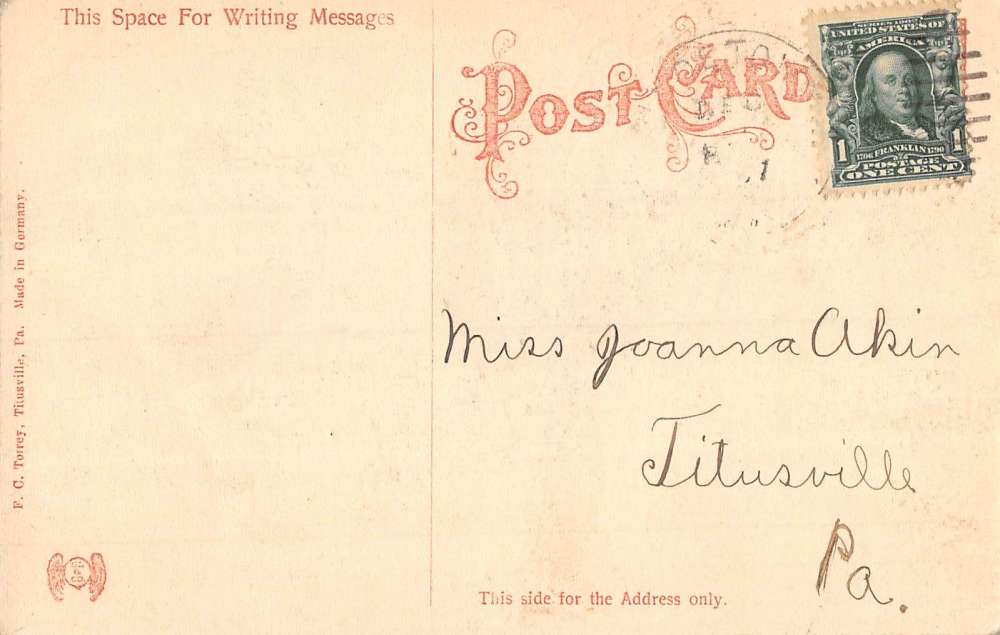 This Space For Writing Messages
POST CARD
SERIES 1902
UNITED STATES OF
AMERICA
1 1706 FRANKLIN 1790 1
POSTAGE
ONE CENT
Miss Joanna Akin
Titusville
Pa.
This side for the Address only.
F. C. Torrey, Titusville, Pa. Made in Germany.